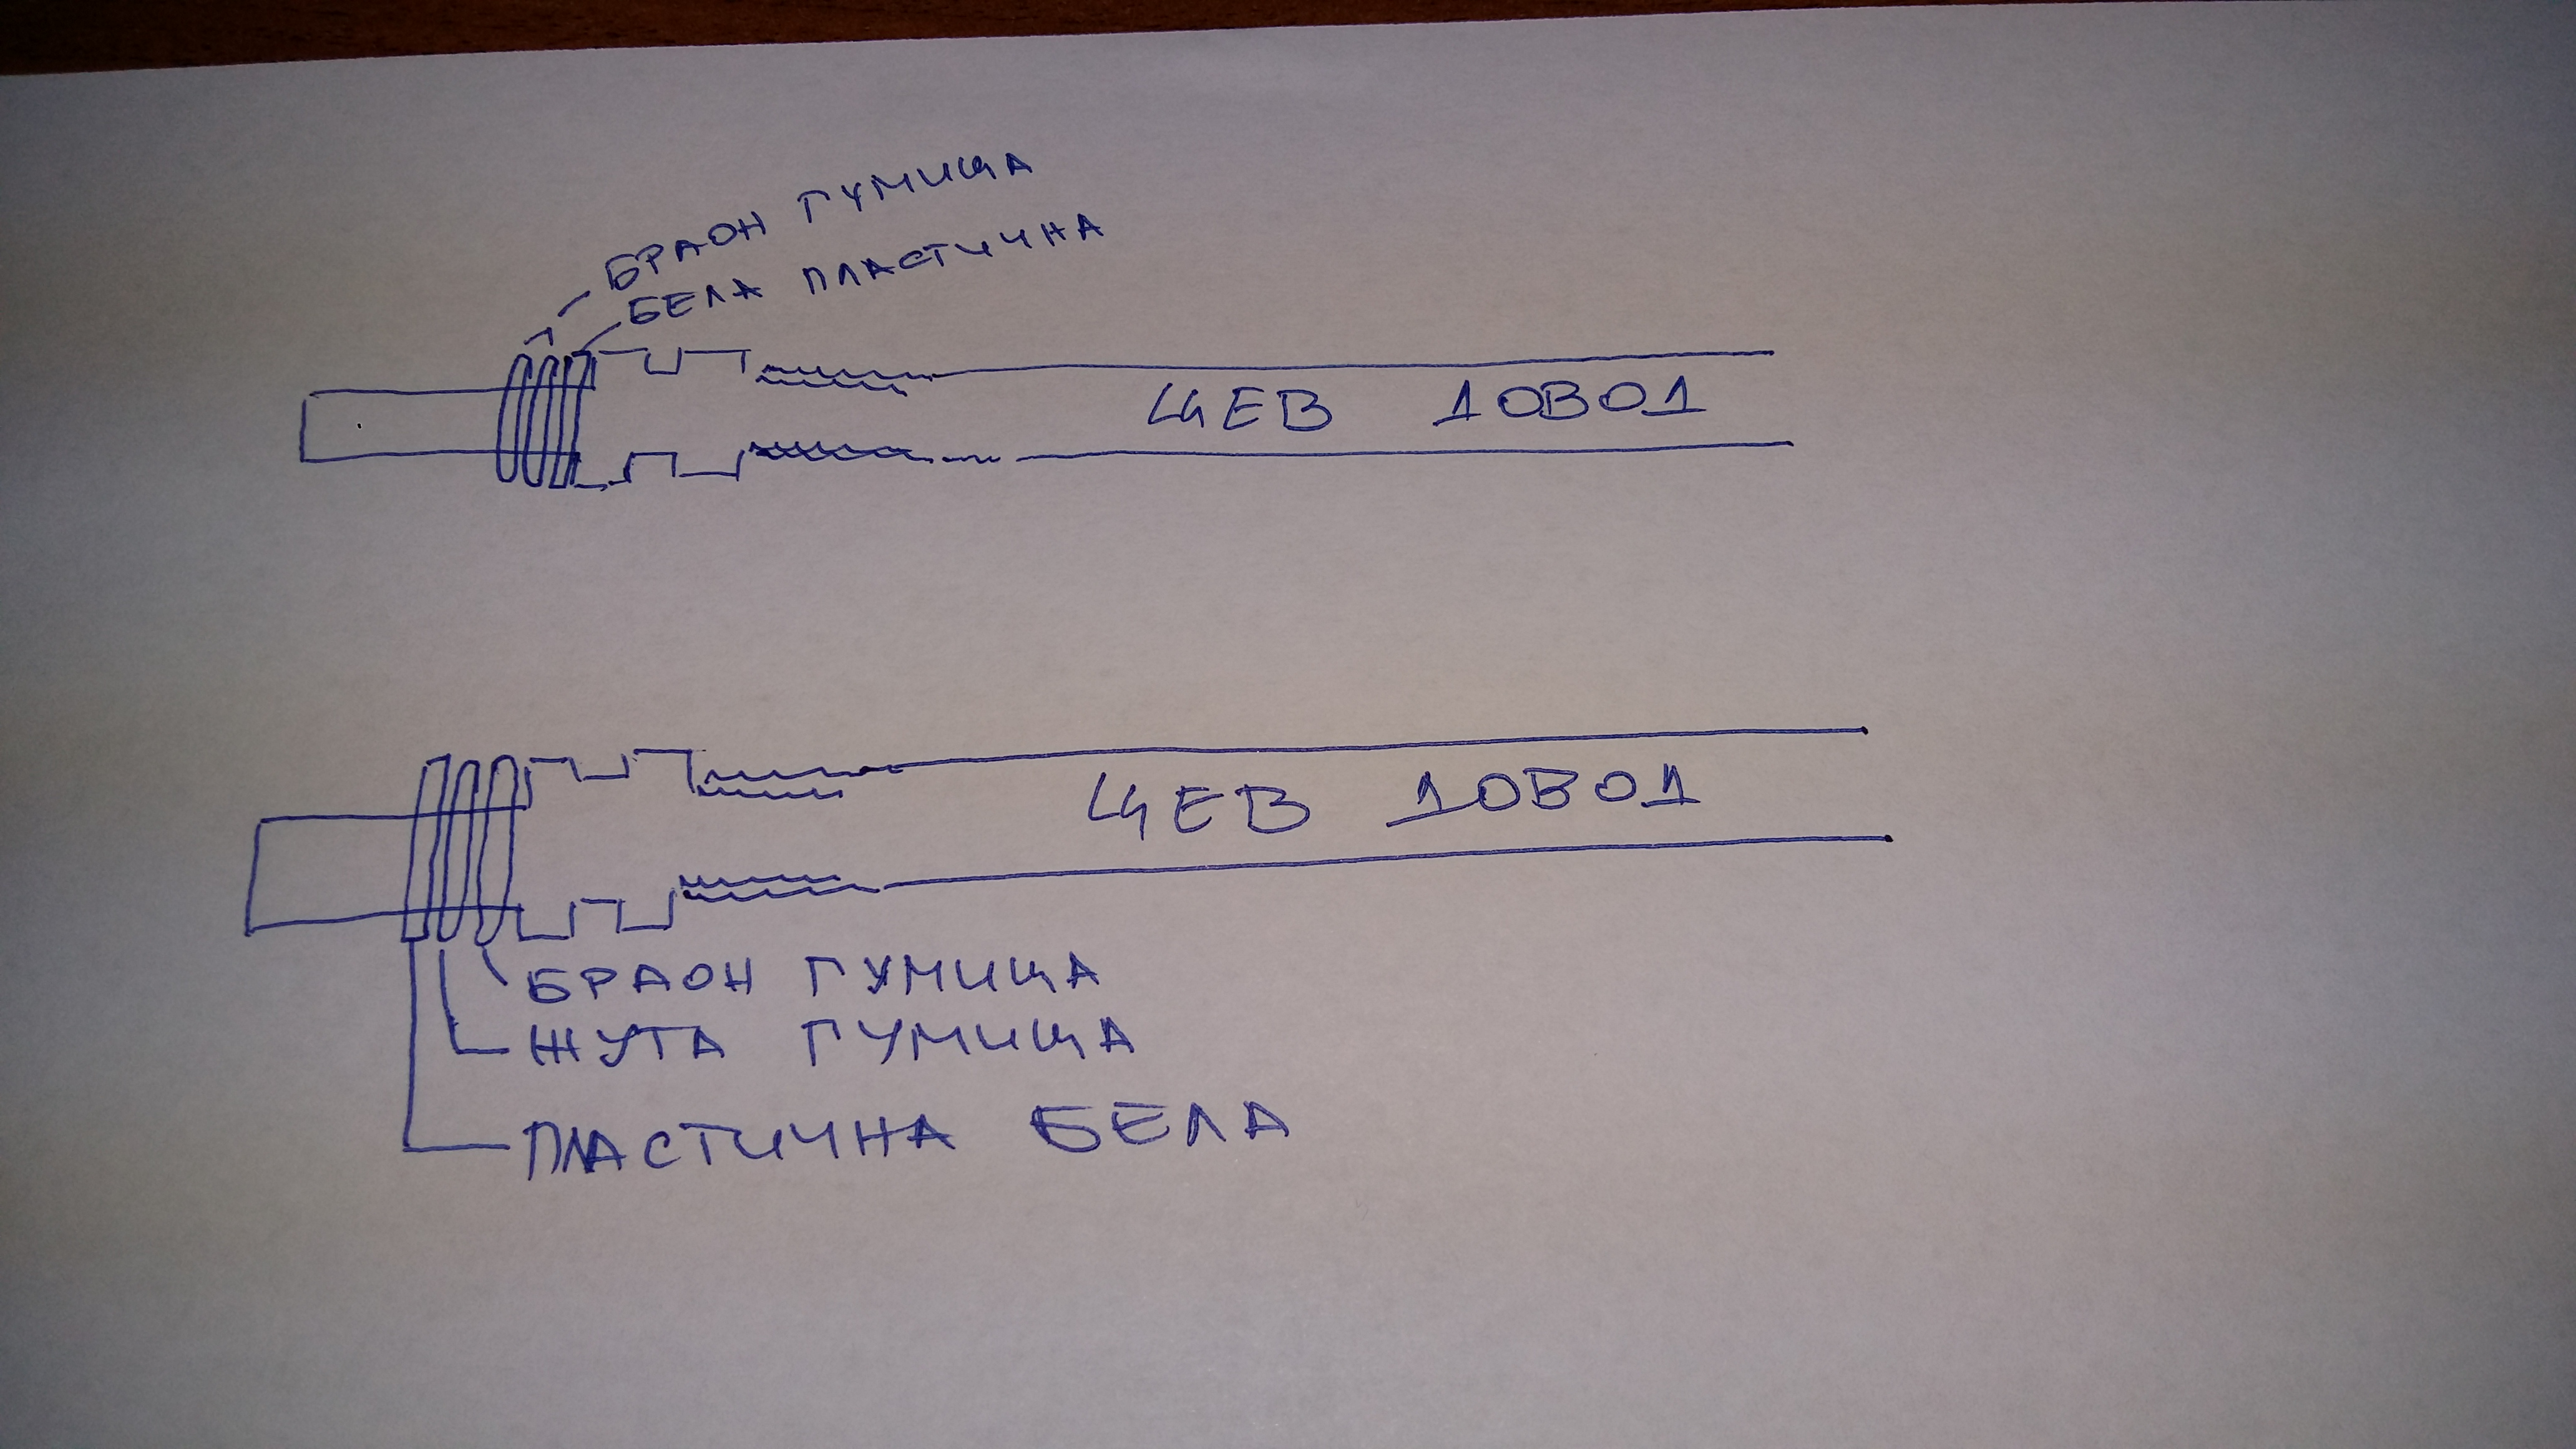 БРАОН ГУМИЦА
БЕЛА ПЛАСТИЧНА
ЦЕВ 10В01
ЦЕВ 10В01
БРАОН ГУМИЦА
ЖУТА ГУМИЦА
ПЛАСТИЧНА БЕЛА